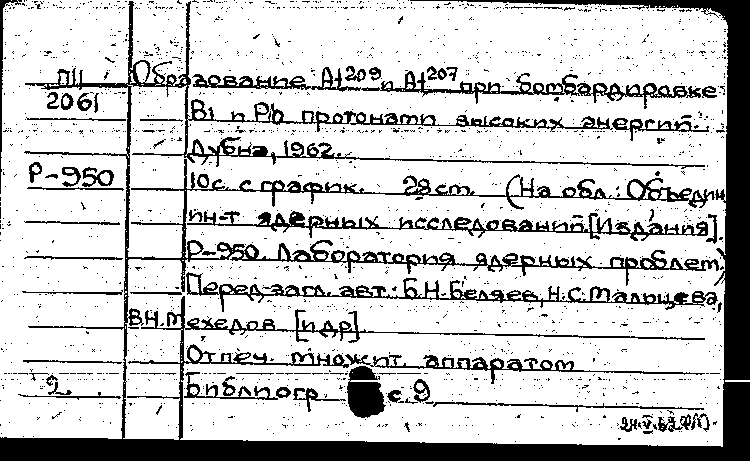 ПЦ Образование At²⁰⁹ и At²⁰⁷ при бомбардировке
2061 Bi и Pb протонами высоких энергий.
Дубна, 1962.
Р-950 10с. с график. 28 см. (На обл.: Объедин
ин-т ядерных исследований. [Издания].
Р-950. Лаборатория ядерных проблем)
Перед загл. авт.: Б.Н. Беляев, Н.С. Мальцева,
В.Н. Мехедов [и др].
Отпеч. множит. аппаратом
2. Библиогр. с. 9